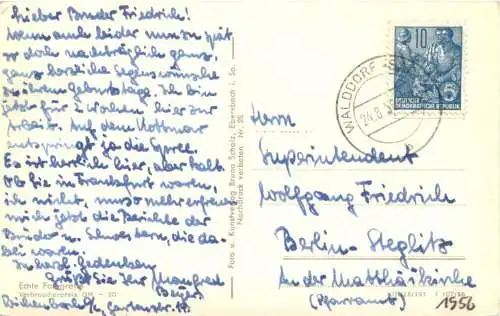 Lieber Bruder Friedrich!
Wenn auch leider nun zu spät,
so doch nachträglich ganz,
ganz herzliche Segenswünsche
zu Ihrem Geburtstage. Ich bin
jetzt für 2 Wochen hier zur
Arbeit. Auf dem Kottmar
entspringt ja die Spree.
Es ist herrlich hier, aber kalt.
Ob Sie in Frankfurt waren,
ich nicht, umso mehr erfreuen
mich jetzt die Berichte der
Brüder u. Schwestern, die da-
bei waren.
In herzl. Gedenken
grüßt Sie Ihr Manfred
Beyer
Reichenbach
Gartenstr. 19
Echte Fotografie
Verbraucherpreis DM —.20
Foto u. Kunstverlag Bruno Scholz, Ebersbach i. Sa.
Nachdruck verboten Nr. 20
WALDDORF
24.8.
10
DEUTSCHE
DEMOKRATISCHE REPUBLIK
Herrn
Superintendent
Wolfgang Friedrich
Berlin-Steglitz
An der Matthäikirche
(Pfarramt)
1956